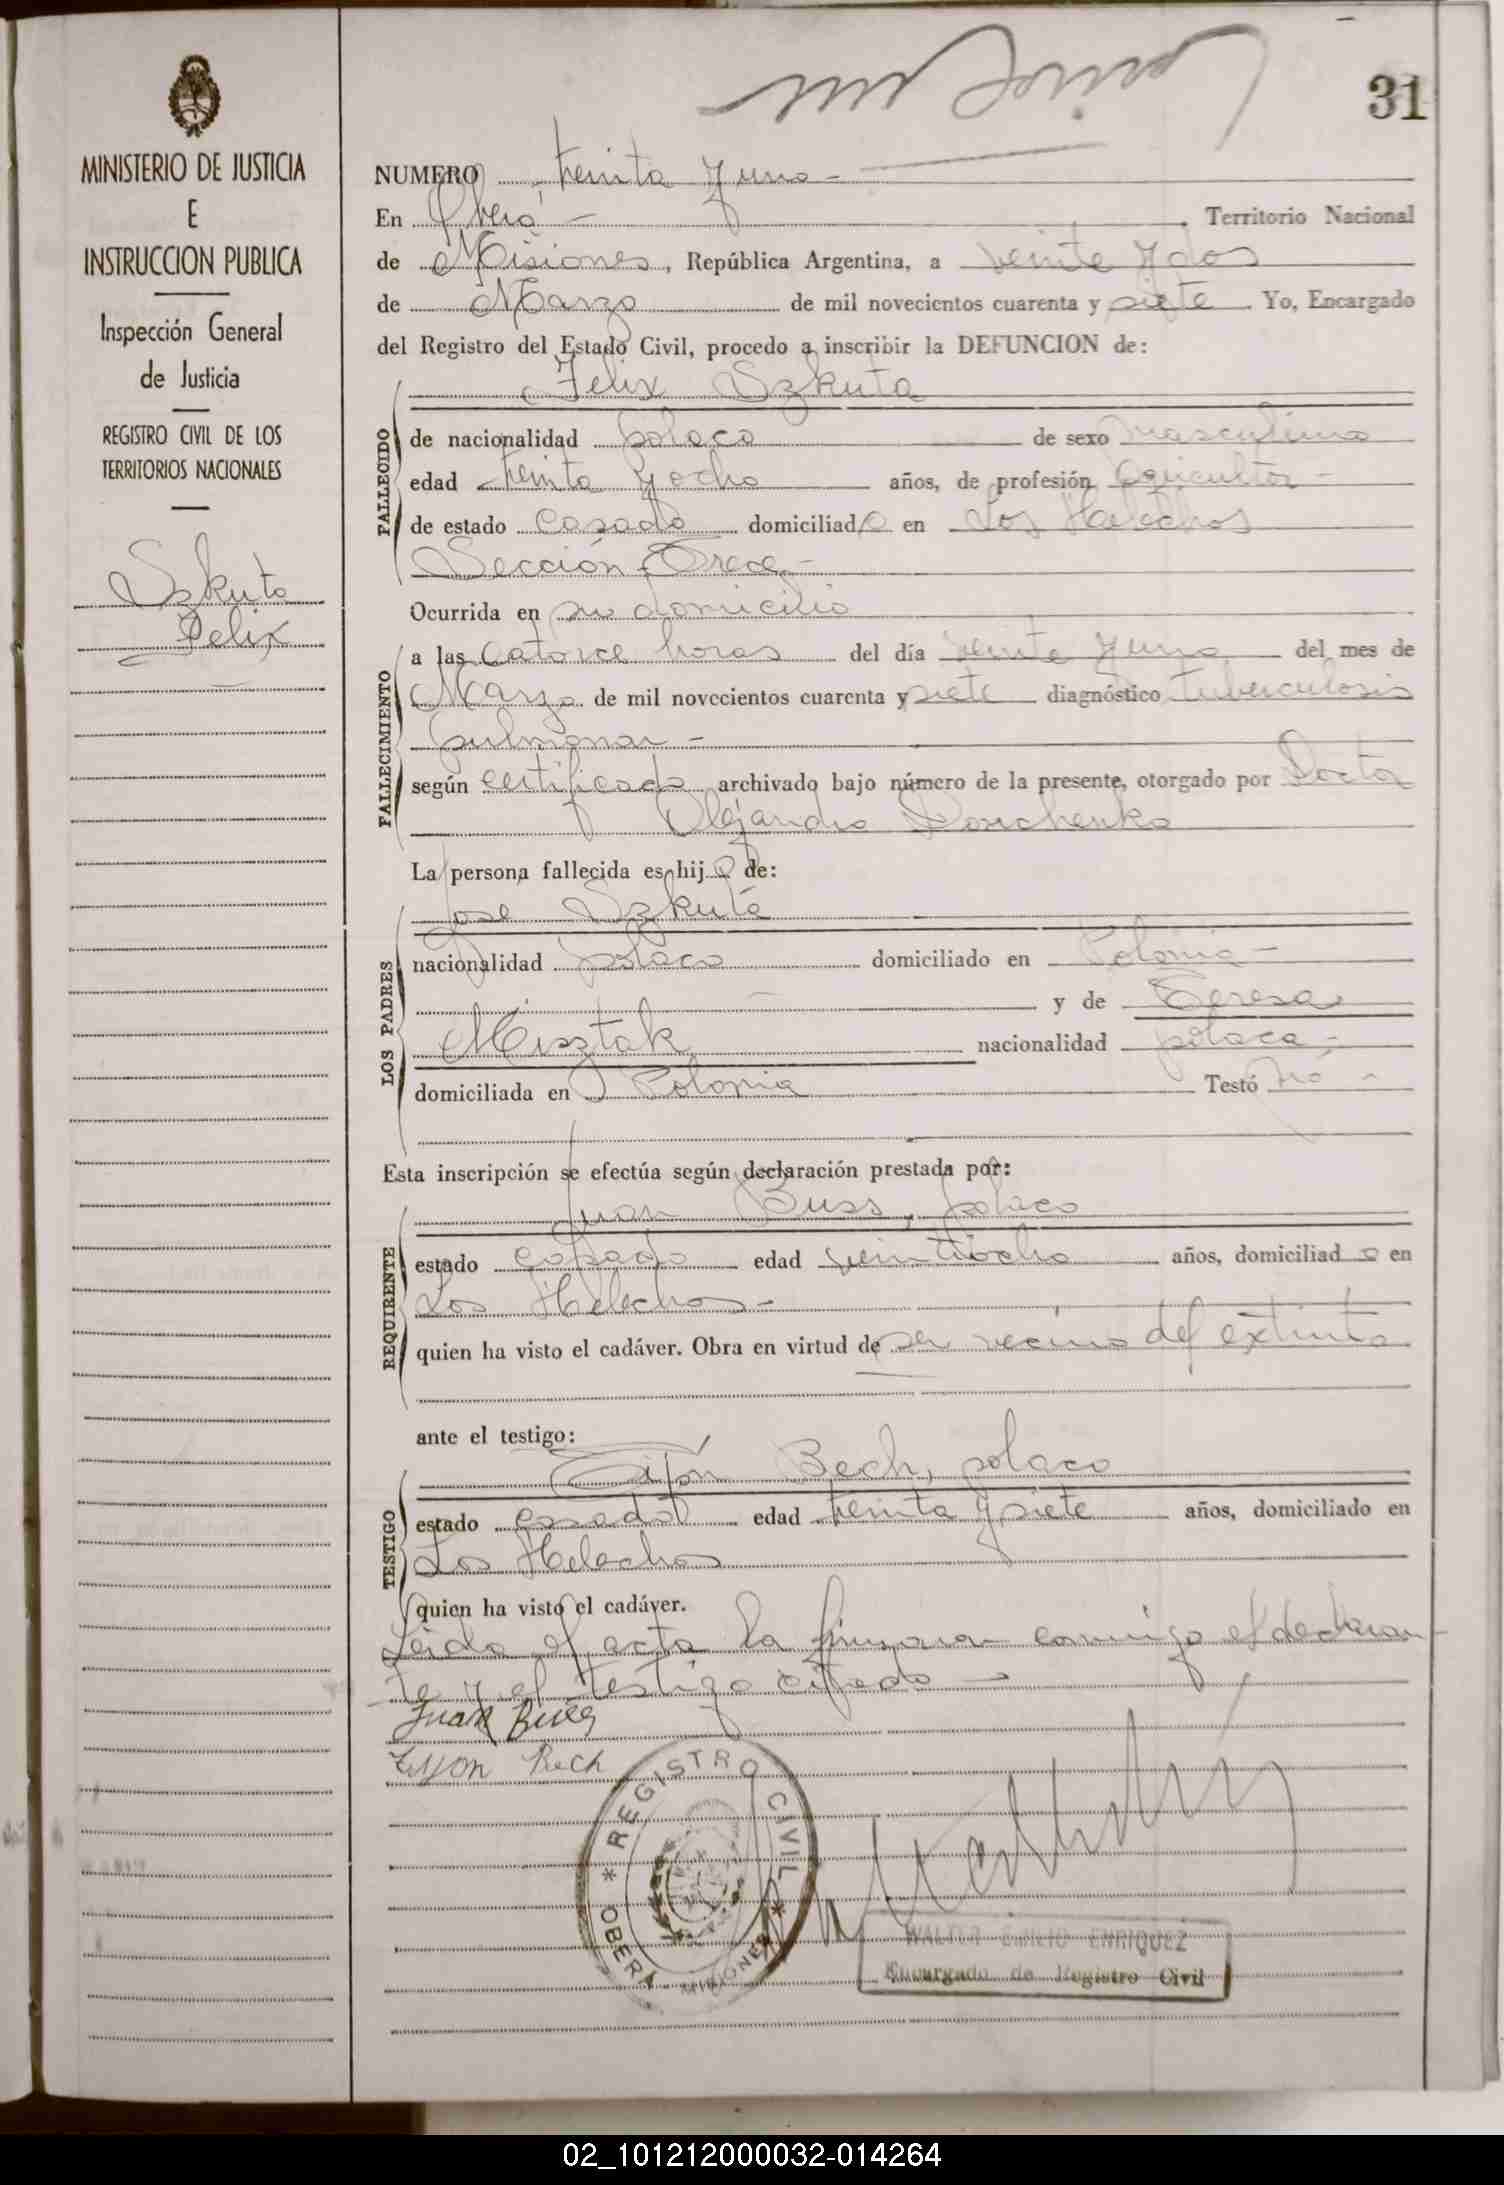 31
MINISTERIO DE JUSTICIA
E
INSTRUCCION PUBLICA
Inspección General
de Justicia
REGISTRO CIVIL DE LOS
TERRITORIOS NACIONALES
Szkuta
Felix
NUMERO treinta y uno -
En Oberá - , Territorio Nacional
de Misiones, República Argentina, a veinte y dos
de Marzo de mil novecientos cuarenta y siete. Yo, Encargado
del Registro del Estado Civil, procedo a inscribir la DEFUNCION de:
Felix Szkuta
FALLECIDO
de nacionalidad polaco de sexo masculino
edad treinta y ocho años, de profesión agricultor -
de estado casado domiciliado en Los Helechos
Sección Trece -
Ocurrida en su domicilio
FALLECIMIENTO
a las catorce horas del día veinte y uno del mes de
Marzo de mil novecientos cuarenta y siete diagnóstico tuberculosis
pulmonar -
según certificado archivado bajo número de la presente, otorgado por Doctor
Alejandro
La persona fallecida es hijo de:
LOS PADRES
José Szkuta
nacionalidad polaco domiciliado en Polonia -
- y de Teresa
Misztak nacionalidad polaca -
domiciliada en Polonia Testó no -
Esta inscripción se efectúa según declaración prestada por:
REQUIRENTE
Juan Buss, polaco
estado casado edad veintiocho años, domiciliado en
Los Helechos -
quien ha visto el cadáver. Obra en virtud de ser vecino del extinto
ante el testigo:
TESTIGO
Tifón Bech, polaco
estado casado edad treinta y siete años, domiciliado en
Los Helechos
quien ha visto el cadáver.
Leida el acta la firmaron conmigo el declaran-
te y el testigo citado -
Juan
Bech
* REGISTRO CIVIL *
OBERA MISIONES
WALTER EMILIO ENRIQUEZ
Encargado de Registro Civil
02_101212000032-014264